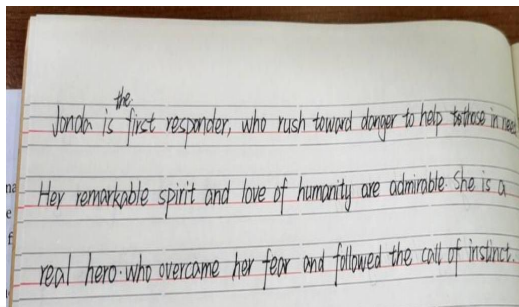 Jonda is the first responder, who rush toward danger to help those in need
Her remarkable spirit and love of humanity are admirable. She is a
real hero. who overcame her fear and followed the call of instinct.